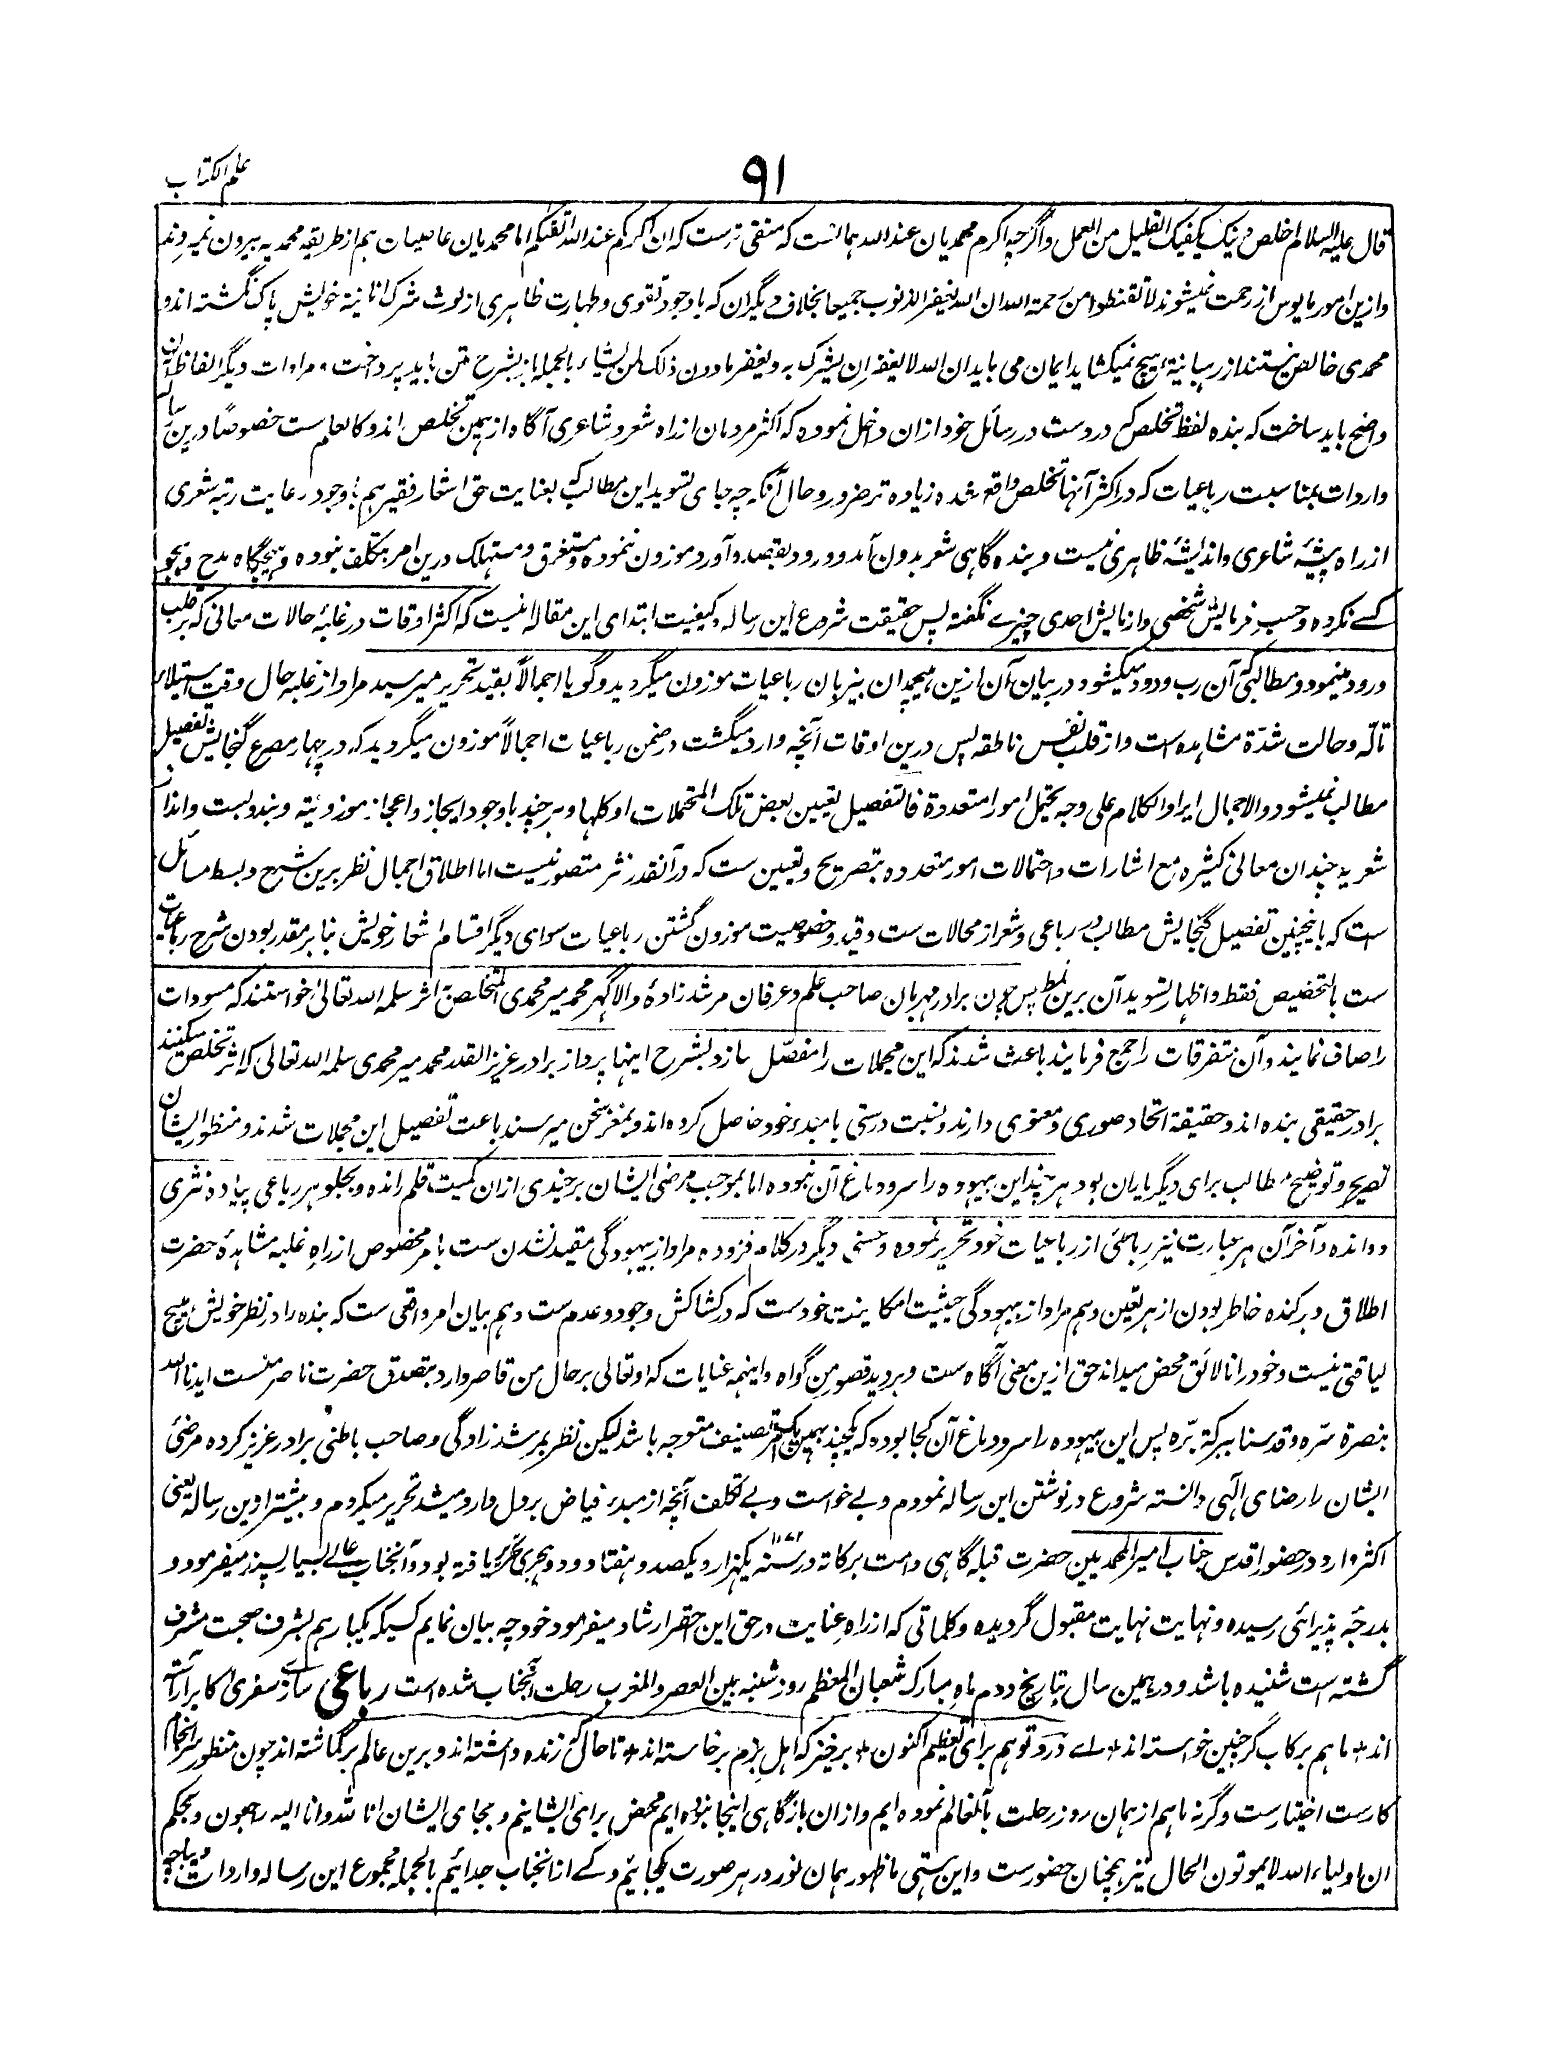 علم الکتاب
۹۱
قال علیه السلام اخلص دینک یکفیک القلیل من العمل و اگرچه اکرم محمدیان عند الله همانست که متقی ترست که ان اکرمکم عند الله اتقکم اما محمدیان عاصیان هم از طریقه محمدیه بیرون نمیروند
و ازین امور مایوس از رحمت نمیشوند لا تقنطوا من رحمة الله ان الله یغفر الذنوب جمیعا بخلاف دیگران که باوجود تقوی و طهارت ظاهری از لوث شرک انانیة خویش پاک نگشته اند و
محمدی خالص نیستند از رهبانیة هیچ نمیکشاید ایمان می باید ان الله لا یغفر ان یشرک به و یغفر ما دون ذلک لمن یشاء بالجمله باز بشرح متن باید پرداخت و مرادات دیگر الفاظ آن
واضح باید ساخت که بنده لفظ تخلص که دردست در رسائل خود ازان داخل نموده که اکثر مردمان از راه شعر و شاعری آگاه از همین تخلص اند و کالعلم ست خصوصاً درین رساله
واردات بمناسبت رباعیات که در اکثر آنها تخلص واقع شده زیاده تر ضرور و حال آنکه چه جای تسوید این مطالب که بعنایت حق اشعار فقیر هم باوجود رعایت رتبه شعری
از راه پیشهٔ شاعری و اندیشهٔ ظاهری نیست و بنده گاهی شعر بدون آمد و ورود بقصد و آورد موزون ننموده و مستغرق و مستهلک درین امر بتکلف نبوده و هیچگاه مدح و هجو
کسے نکرده و حسب فرمایش شخصی و ازمایش احدی چیزے نگفته پس حقیقت شروع این رساله و کیفیت ابتدای این مقاله اینست که اکثر اوقات در غلبهٔ حالات معانی که بر قلب
ورود مینمود و مطالبی که آن رب ودود میکشود در بیان آن ازین هیچمدان بیزبان رباعیات موزون میگردید و گویا اجمالاً بقید تحریر میرسید مراد از غلبه حال وقت استیلاء
تألّه و حالت شدّة مشاهده است و از قلب نفس ناطقه پس درین اوقات آنچه وارد میگشت در ضمن رباعیات اجمالاً موزون میگردید که در چهار مصرع گنجایش تفصیل
مطالب نمیشود و الاجمال ایراد الکلام علی وجه یحتمل امورا متعددة فالتفصیل تعیین بعض تلک المحتملات او کلها و هر چند باوجود ایجاز و اعجاز موزونیته و بندوبست و انداز
شعریه چندان معانی کثیره مع اشارات و احتمالات امور متعدده بتصریح و تعیین ست که در آنقدر نثر متصور نیست اما اطلاق اجمال نظر برین شرح و بسط مسائل
ست که باینچنین تفصیل گنجایش مطالب در رباعی و شعر از محالات ست و قید و خصوصیت موزون گشتن رباعیات سوای دیگر اقسام اشعار خویش بنا بر مقدر بودن شرح رباعیات
ست بالتخصیص فقط و اظهار تسوید آن برین نمط پس چون برادر مهربان صاحب علم و عرفان مرشد زادهٔ والا گهر محمد میر محمدی المتخلص به اثر سلمه الله تعالیٰ خواستند که مسودات
را صاف نمایند و آن متفرقات را جمع فرمایند باعث شدند که این مجملات را مفصّل سازد و بشرح اینها پردازد برادر عزیز القدر محمد میر محمدی سلمه الله تعالی که اثر تخلص میکنند
برادر حقیقی بنده اند و حقیقة اتحاد صوری و معنوی دارند و نسبت درستی با مبدء خود حاصل کرده اند و بمغز سخن میرسند باعث تفصیل این مجملات شدند و منظور ایشان
تصریح و توضیح مطالب برای دیگر یاران بود هر چند این بیهوده را سر و دماغ آن نبوده اما بموجب مرضی ایشان بر چندی ازان کمیت قلم رانده و بجلو هر رباعی پیاده نثری
دوانده و آخر آن هر عبارت نیز رباعئی از رباعیات خود تحریر نموده و حسنی دیگر در کلام فزوده مراد از بیهودگی مقید نشدن ست بامر مخصوص از راه غلبه مشاهدهٔ حضرت
اطلاق و برکنده خاطر بودن از هر تعین و هم مراد از بیهودگی حیثیت امکانیته خودست که در کشاکش وجود و عدم ست و هم بیان امر واقعی ست که بنده را در نظر خویش هیچ
لیاقتی نیست و خود را نالائق محض میداند حق ازین معنی آگاه ست و بر دید قصور من گواه و اینهمه عنایات که او تعالی بر حال من قاصر دارد بتصدق حضرت ناصر منست ایدنا الله
بنصرة سرّه و قدسنا ببرکة برّه پس این بیهوده را سر و دماغ آن کجا بوده که یکچند بهمین یک امر تصنیف متوجه باشد لیکن نظر بر مرشد زادگی و صاحب باطنی برادر عزیز کرده مرضئ
ایشان را رضای الٰهی دانسته شروع در نوشتن این رساله نمودم و بے خواست و بے تکلف آنچه از مبدء فیاض بر دل وارد میشد تحریر میکردم و بیشتر ازین رساله یعنی
اکثر وارد در حضور اقدس جناب امیر المحمدیین حضرت قبله گاهی دامت برکاته در سنه ۱۱۷۲ یکهزار و یکصد و هفتاد و دو هجری تحریر یافته بود و آنجناب عالے بسیار پسند میفرمودد و
بدرجهٔ پذیرائی رسیده و نهایت نهایت مقبول گردیده و کلماتی که از راه عنایت در حق این احقر ارشاد میفرمود خود چه بیان نمایم کسیکه یکبار هم بشرف صحبت مشرف
گشته است شنیده باشد و در همین سال بتاریخ دوم ماه مبارک شعبان المعظم روز شنبه بین العصر و المغرب رحلت آنجناب شده است رباعی سازے سفری که ایبر آراسته
اند + ما هم برکاب گر چنین خواسته اند + اے درد تو هم برای تعظیم اکنون + برخیز که اهل بزم برخاسته اند + تا حال که زنده داشته اند و برین عالم برگماشته اند چون منظور سرانجام
کارست اختیارست وگرنه ما هم از همان روز رحلت بآنعالم نموده ایم و ازان باز گاهی اینجا نبوده ایم محض برای ایشانیم و بجای ایشان انا لله و انا الیه راجعون و بحکم
ان اولیاء الله لا یموتون الحال نیز همچنان حضورست و این هستی ما ظهور همان نور در هر صورت یکجائیم و کے ازانجناب جدائیم بالجمله مجموع این رساله واردات و دیباچه